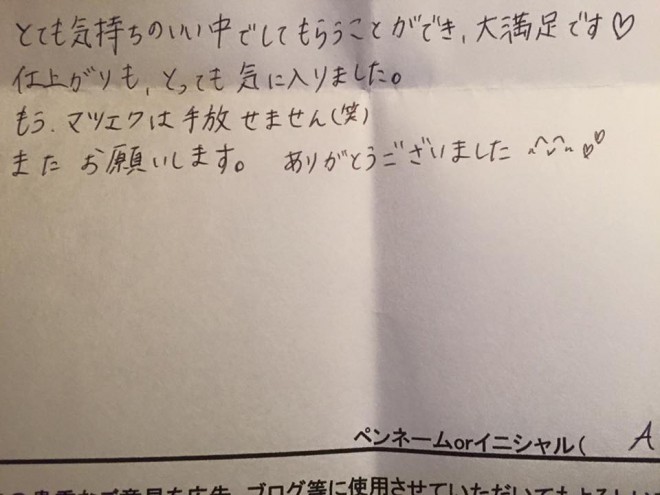 とても気持ちのいい中でしてもらうことができ、大満足です♡
仕上がりも、とっても気に入りました。
もう、マツエクは手放せません(笑)
またお願いします。 ありがとうございました ^^♡♡
ペンネームorイニシャル( A
ご意見を広告、ブログ等に使用させていただいてもよろしい